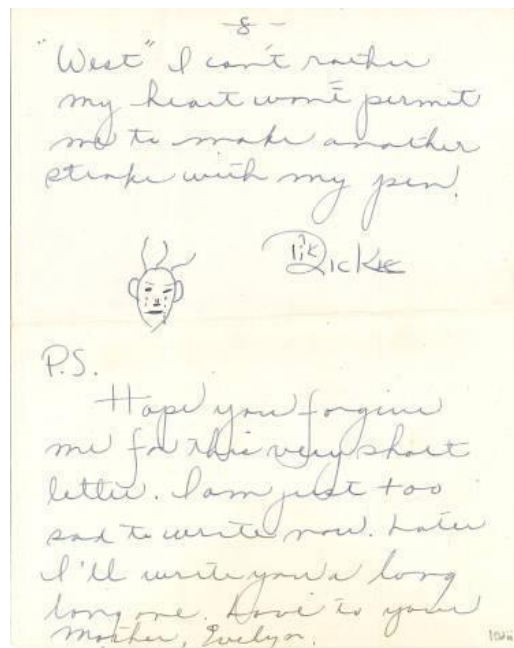 - 8 -
"West" I can't rather
my heart won't permit
me to make another
stroke with my pen.
Dickie
P.S.
Hope you forgive
me for this very short
letter. I am just too
sad to write now. Later
I'll write you a long
long one. Love to your
Mother, Evelyn.